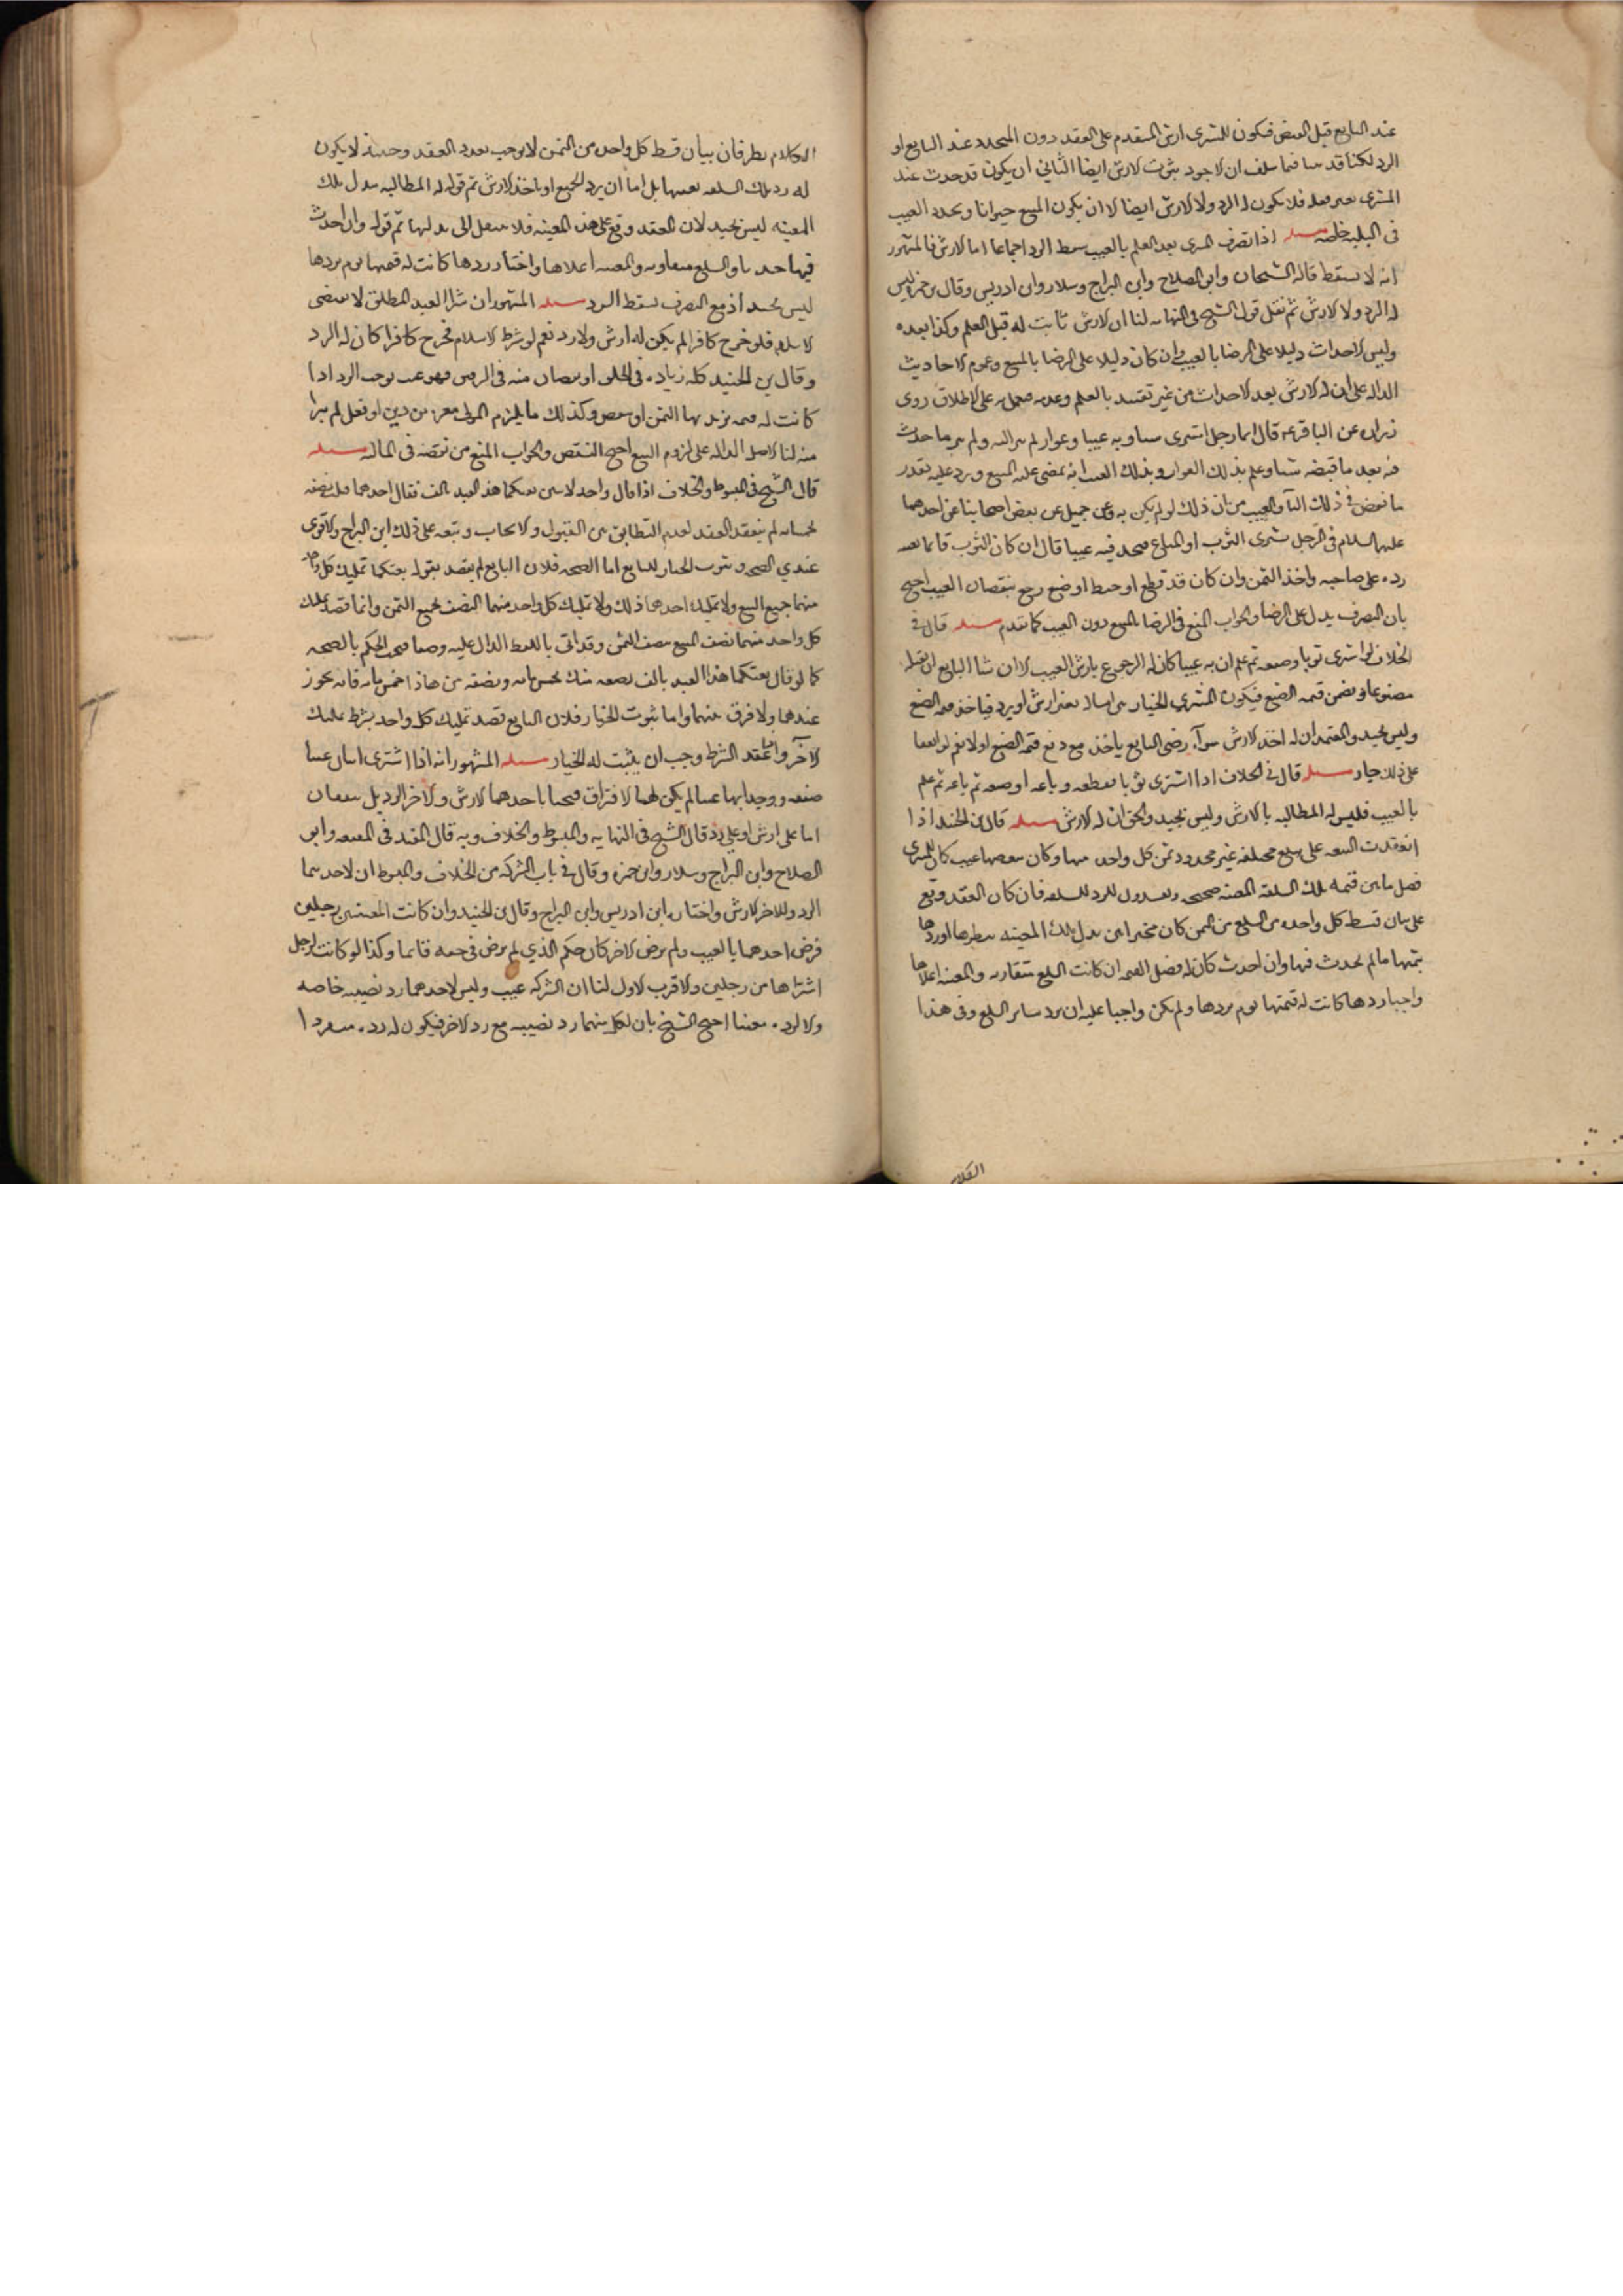 عند البايع قبل القبض فيكون للمشترى ارش المتقدم على العقد دون المتجدد عند البايع او
الرد لكنا قد بينا فيما سلف ان الاجود ثبوت الارش ايضا الثانى ان يكون قد حدث عند
المشترى بغير فعله فلا يكون له الرد ولا الارش ايضا الا ان يكون المبيع حيوانا وتجدد العيب
فى الثلثة خاصة مسله اذا تصرف المشترى بعد العلم بالعيب سقط الرد اجماعا اما الارش فالمشهور
انه لا يسقط قاله الشيخان وابو الصلاح وابن البراج وسلار وابن ادريس وقال بن حمزة ليس
له الرد ولا الارش ثم نقل قول الشيخ فى النهايه لنا ان الارش ثابت له قبل العلم وكذا بعده
وليس الاحداث دليلا على الرضا بالعيب وان كان دليلا على الرضا بالمبيع وعموم الاحاديث
الداله على ان له الارش بعد الاحداث من غير تقييد بالعلم وعدمه فيحمل على الاطلاق روى
زراره عن الباقر ع قال ايما رجل اشترى شيا وبه عيب او عوار لم يتبرا اليه ولم يبر ما حدث
فيه بعد ما قبضه شيا وعلم بذلك العوار وبذلك العيب انه يمضى عليه البيع ويرد عليه بقدر
ما نقص فى ذلك الدآ والعيب من ثمن ذلك لو لم يكن به وعن جميل عن بعض اصحابنا عن احدهما
عليهما السلام فى الرجل يشترى الثوب او المتاع فيجد فيه عيبا قال ان كان الثوب قايما بعينه
رده على صاحبه واخذ الثمن وان كان قد قطع او خيط او صبغ رجع بنقصان العيب احتج
بان التصرف يدل على الرضا والجواب المنع فى الرضا بالمبيع دون العيب كما تقدم مسله قال فى
الخلاف لو اشترى ثوبا وصبغه ثم علم ان به عيبا كان له الرجوع بارش العيب الا ان شا البايع ان يقبله
مصبوغا ويضمن قيمه الصبغ فيكون المشترى بالخيار بين امساكه بغير ارش او يرده فياخذ قيمه الصبغ
وليس بجيد والمعتمد ان له اخذ الارش سوآء رضى البايع ياخذه مع دفع قيمة الصبغ اولا نعم لو اتفقا
على ذلك جاز مسله قال فى الخلاف اذا اشترى ثوبا فقطعه وباعه او صبغه ثم باعه ثم علم
بالعيب فليس له المطالبه بالارش وليس بجيد والحق ان له الارش مسله قال بن الجنيد اذا
انعقدت البيعه على سلع مختلفه غير محدود ثمن كل واحده منها وكان ببعضها عيب كان للمشترى
فضل ما بين قيمه تلك السلعة المعيبه صحيحه وبعد دون الرد للسلعه فان كان العقد وقع
على بيان قسط كل واحده من السلع من الثمن كان مخيرا بين بدل تلك المعيبه بنظيرها او ردها
بثمنها ما لم يحدث فيها وان احدث كان له فضل القيمه ان كانت السلع متقاربه والمعيبه اعلاها
واختار ردها كانت له قيمتها يوم يردها ولم يكن واجبا عليه ان يرد ساير السلع وفى هذا
الكلام
الكلام نظر فان بيان قسط كل واحده من الثمن لا يوجب تعدد العقد وحينئذ لا يكون
له رد تلك السلعه بعينها بل اما ان يرد الجميع او ياخذ الارش ثم قوله له المطالبه ببدل تلك
المعيبه ليس بجيد لان العقد وقع على هذه المعيبه فلا ينتقل الى بدلها ثم قوله وان احدث
فيها حدثا والسلع متفاوته والمعيبه اعلاها واختار ردها كانت له قيمتها يوم يردها
ليس بجيد اذ مع التصرف يسقط الرد مسله المشهور ان شرا العبد المطلق لا يقتضى
الاسلام فلو خرج كافرا لم يكن له ارش ولا رد نعم لو شرط الاسلام فخرج كافرا كان له الرد
وقال بن الجنيد كله زياده فى الخلق او نقصان منه فى الرقيق فهو عيب يوجب الرد اذا
كانت له قيمه يزيد بها الثمن او ينقص وكذلك ما يلزم المولى من دين او فعل لم يبرا
منه لنا الاصل الداله على لزوم البيع احتج النقص والجواب المنع من نقصه فى الماليه مسله
قال الشيخ فى المبسوط والخلاف اذا قال واحد لاثنين بعتكما هذا العبد بالف فقال احدهما قبلت نصفه
بخمسمايه لم ينعقد العقد لعدم التطابق بين القبول والايجاب وتبعه على ذلك ابن البراج والاقوى
عندي الصحه وثبوت الخيار للبايع اما الصحه فلان البايع لم يقصد بقوله بعتكما تمليك كل واحد
منهما جميع المبيع ولا تمليك احدهما ذلك ولا تمليك كل واحد منهما النصف بجميع الثمن وانما قصد تمليك
كل واحد منهما نصف المبيع بنصف الثمن وقد اتى باللفظ الدال عليه وضعا فيجب الحكم بالصحه
كما لو قال بعتكما هذا العبد بالف نصفه منك بخمسمايه ونصفه من هذا بخمسمايه فانه يجوز
عندهما ولا فرق بينهما واما ثبوت الخيار فلان البايع قصد تمليك كل واحد بشرط تمليك
الآخر واذا فقد الشرط وجب ان يثبت له الخيار مسله المشهور انه اذا اشترى اثنان عينا
صفقه ووجدا بها عيبا لم يكن لهما الافتراق فيختار احدهما الارش والآخر الرد بل يتفقان
اما على ارش او على رد قال الشيخ فى النهايه والمبسوط والخلاف وبه قال المفيد فى المقنعه وابو
الصلاح وابن البراج وسلار وابن حمزه وقال فى باب الشركه من الخلاف والمبسوط ان لاحدهما
الرد وللاخر الارش واختاره ابن ادريس وابن البراج وقال بن الجنيد وان كانت المعيبه بين رجلين
فرض احدهما بالعيب ولم يرض الاخر كان حكم الذي لم يرض فى حقه قايما وكذا لو كانت لرجل
اشتراها من رجلين والاقرب الاول لنا ان الشركه عيب وليس لاحدهما رد نصيبه خاصه
والا لرده معيبا احتج الشيخ بان لكل منهما رد نصيبه مع رد الاخر فيكون له رده منفردا